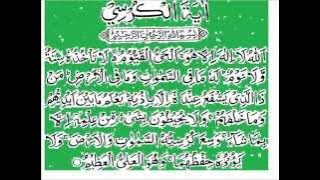 آيَةُ الْكُرْسِيِّ
بِسْمِ اللهِ الرَّحْمٰنِ الرَّحِيْمِ
اَللهُ لَا اِلٰهَ اِلَّا هُوَ الْحَيُّ الْقَيُّوْمُ لَا تَأْخُذُهُ سِنَةٌ
وَلَا نَوْمٌ لَهُ مَا فِى السَّمٰوٰتِ وَمَا فِى الْاَرْضِ مَنْ
ذَا الَّذِيْ يَشْفَعُ عِنْدَهُ اِلَّا بِاِذْنِهِ يَعْلَمُ مَا بَيْنَ اَيْدِيْهِمْ
وَمَا خَلْفَهُمْ وَلَا يُحِيْطُوْنَ بِشَيْءٍ مِنْ عِلْمِهِ اِلَّا
بِمَا شَاءَ وَسِعَ كُرْسِيُّهُ السَّمٰوٰتِ وَالْاَرْضَ وَلَا
يَئُوْدُهُ حِفْظُهُمَا وَهُوَ الْعَلِيُّ الْعَظِيْمُ